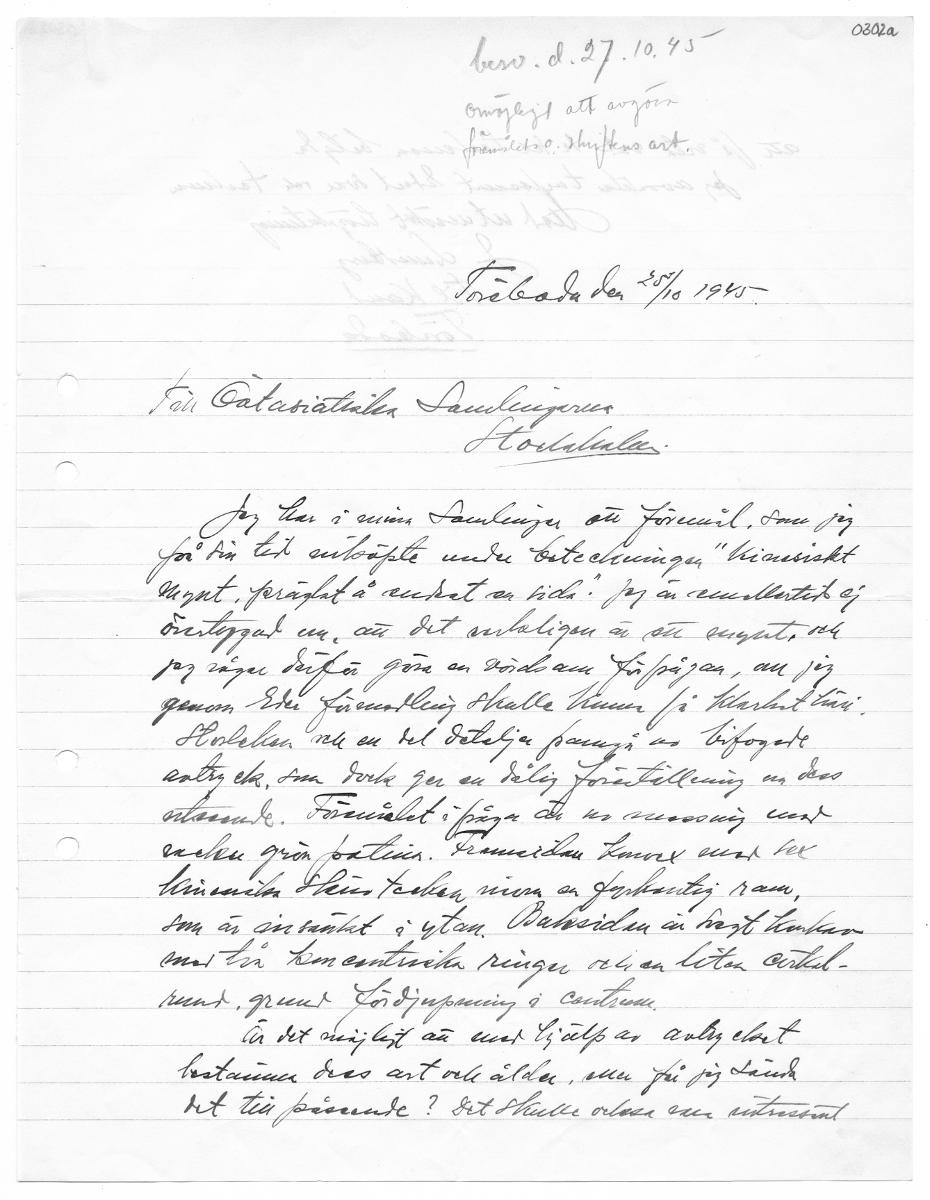 0302a
besv. d. 27.10.45
omöjligt att avgöra
föremålets o. skriftens art.
Töreboda den 25/10 1945.
Till Östasiatiska Samlingarna
Stockholm.
Jag har i mina Samlingar ett föremål, som jag
på sin tid inköpte under beteckningen "kinesiskt
mynt, präglat å endast en sida". Jag är emellertid ej
övertygad om, att det verkligen är ett mynt, och
jag vågar därför göra en vördsam förfrågan, om jag
genom Eder förmedling skulle kunna få klarhet häri.
Storleken och en del detaljer framgå av bifogade
avtryck, som dock ger en dålig föreställning om dess
utseende. Föremålet i fråga är av mässing med
vacker grön patina. Framsidan konvex med sex
kinesiska skrivtecken inom en fyrkantig ram,
som är insänkt i ytan. Baksidan är svagt konkav
med två koncentriska ringar och en liten cirkel-
rund, grund fördjupning i centrum.
Är det möjligt att med hjälp av avtrycket
bestämma dess art och ålder, eller får jag sända
det till påseende? Det skulle också vara intressant